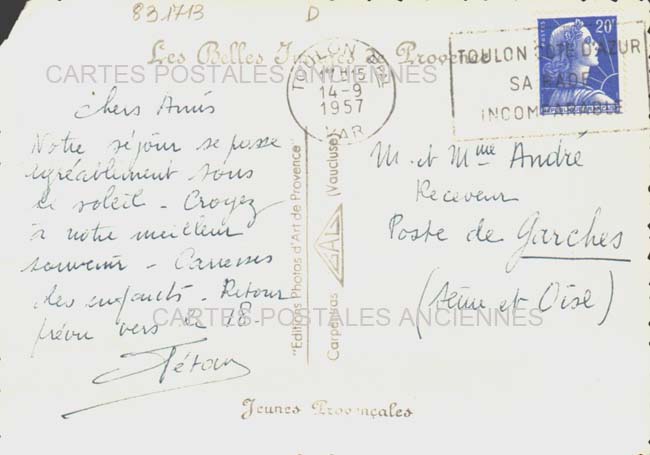 831713
D
Les Belles Images de Provence
CARTES POSTALES ANCIENNES
TOULON
14-9
1957
VAR
TOULON COTE D'AZUR
SA RADE
INCOMPARABLE
20F
Chers Amis
Notre séjour se passe
agréablement sous
le soleil - Croyez
à notre meilleur
souvenir - Caresses
des enfants - Retour
prévu vers le 18.
"Editions Photos d'Art de Provence"
Carpentras GAL (Vaucluse)
M. et Mme André
Receveur
Poste de Garches
(Seine et Oise)
CARTES POSTALES ANCIENNES
Jeunes Provençales